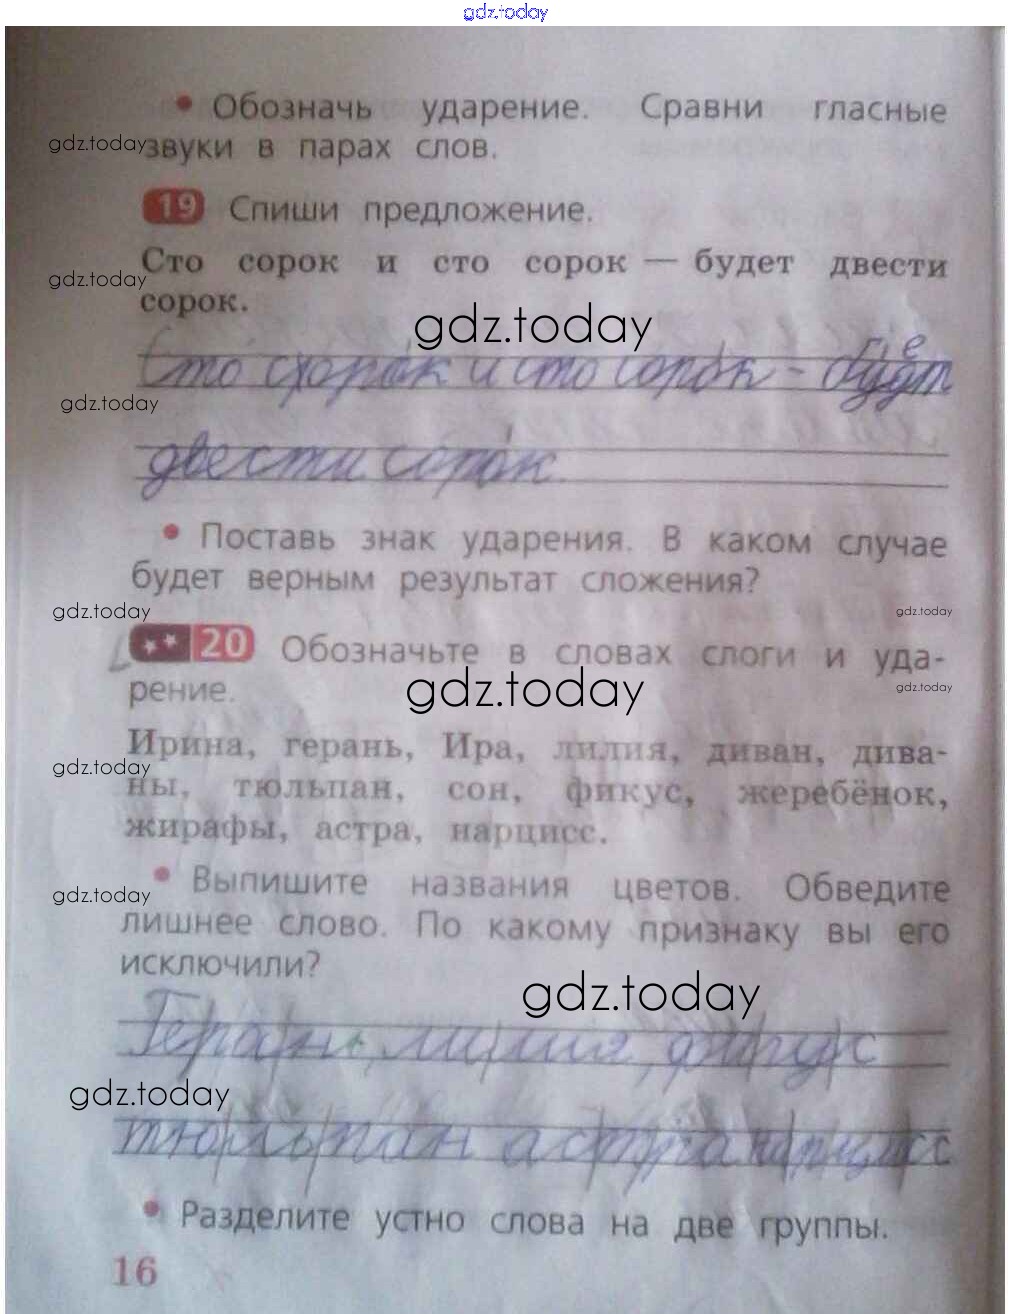 gdz.today
• Обозначь ударение. Сравни гласные
gdz.today
звуки в парах слов.
19 Спиши предложение.
Сто сорок и сто сорок — будет двести
gdz.today
сорок.
gdz.today
Сто сорок и сто сорок - будет
gdz.today
двести сорок.
• Поставь знак ударения. В каком случае
будет верным результат сложения?
gdz.today
gdz.today
20 Обозначьте в словах слоги и уда-
gdz.today
gdz.today
рение.
Ирина, герань, Ира, лилия, диван, дива-
gdz.today
ны, тюльпан, сон, фикус, жеребёнок,
жирафы, астра, нарцисс.
• Выпишите названия цветов. Обведите
gdz.today
лишнее слово. По какому признаку вы его
исключили?
gdz.today
Герань, лилия, фикус
gdz.today
тюльпан астра нарцисс
• Разделите устно слова на две группы.
16